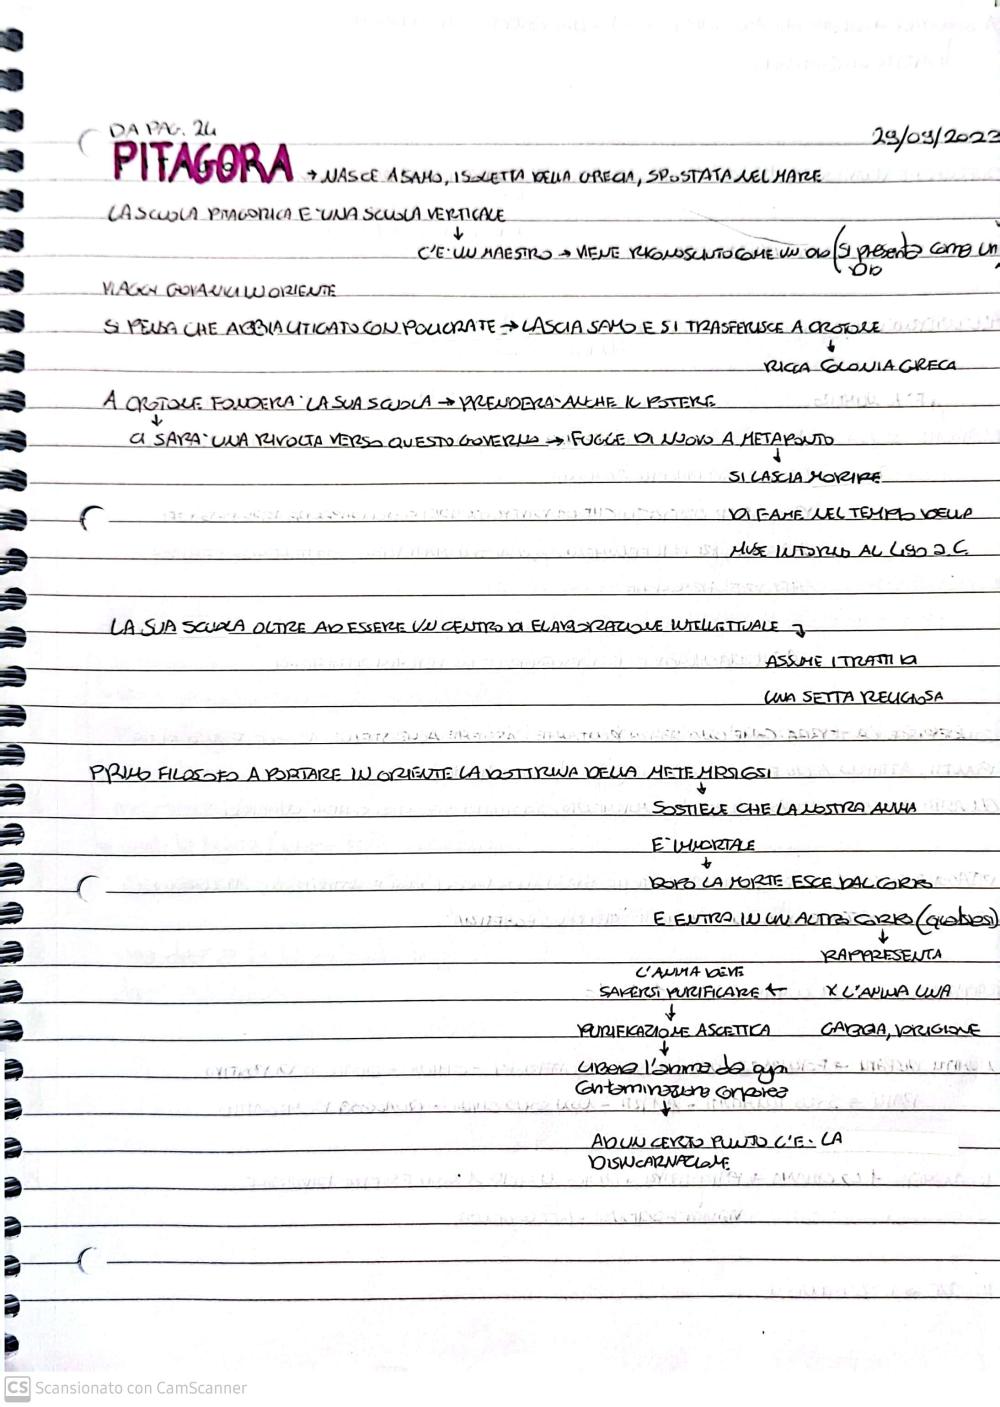 DA PAG. 24
29/09/2023
PITAGORA → NASCE A SAMO, ISOLETTA DELLA GRECIA, SPOSTATA NEL MARE
LA SCUOLA PITAGORICA E' UNA SCUOLA VERTICALE
↓
C'E' UN MAESTRO → VIENE RICONOSCIUTO COME UN DIO (si presenta come un
DIO
VIAGGI GIOVANILI IN ORIENTE
SI PENSA CHE ABBIA LITIGATO CON POLICRATE → LASCIA SAMO E SI TRASFERISCE A CROTONE
↓
RICCA COLONIA GRECA
A CROTONE FONDERA' LA SUA SCUOLA → PRENDERA' ANCHE IL POTERE
↓
CI SARA' UNA RIVOLTA VERSO QUESTO GOVERNO → FUGGE DI NUOVO A METAPONTO
↓
SI LASCIA MORIRE
DI FAME NEL TEMPIO DELLA
MUSE INTORNO AL 490 a.C.
LA SUA SCUOLA OLTRE AD ESSERE UN CENTRO DI ELABORAZIONE INTELLETTUALE ↴
ASSUME I TRATTI DI
UNA SETTA RELIGIOSA
PRIMO FILOSOFO A PORTARE IN ORIENTE LA DOTTRINA DELLA METEMPSICSI
↓
SOSTIENE CHE LA NOSTRA ANIMA
E' IMMORTALE
↓
DOPO LA MORTE ESCE DAL CORPO
E ENTRA IN UN ALTRO CORPO (qualsiasi)
↓
RAPPRESENTA
L'ANIMA DEVE
SAPERSI PURIFICARE ← X L'ANIMA UNA
↓
PURIFICAZIONE ASCETICA GABBIA, PRIGIONE
↓
Libera l'anima da ogni
contaminazione corporea
↓
AD UN CERTO PUNTO C'E' LA
DISINCARNAZIONE
CS Scansionato con CamScanner